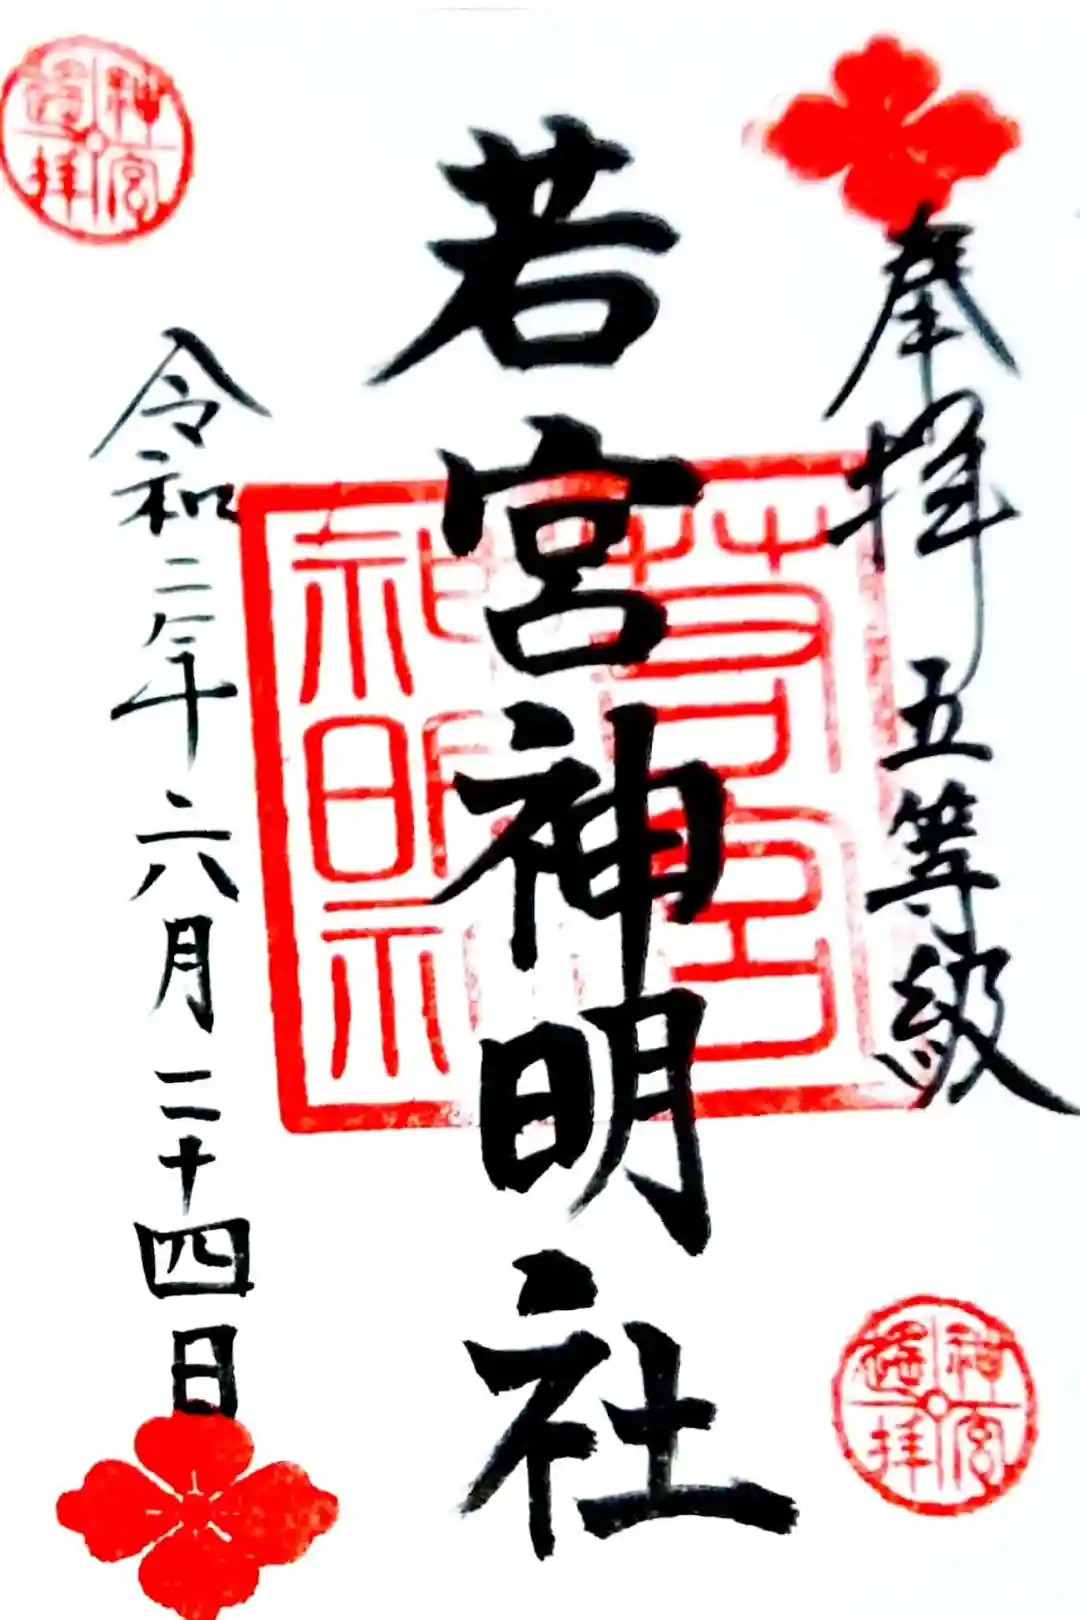 奉拝 五等級
若宮神明社
令和二年六月二十四日
神宮遥拝
若宮神明社
神宮遥拝